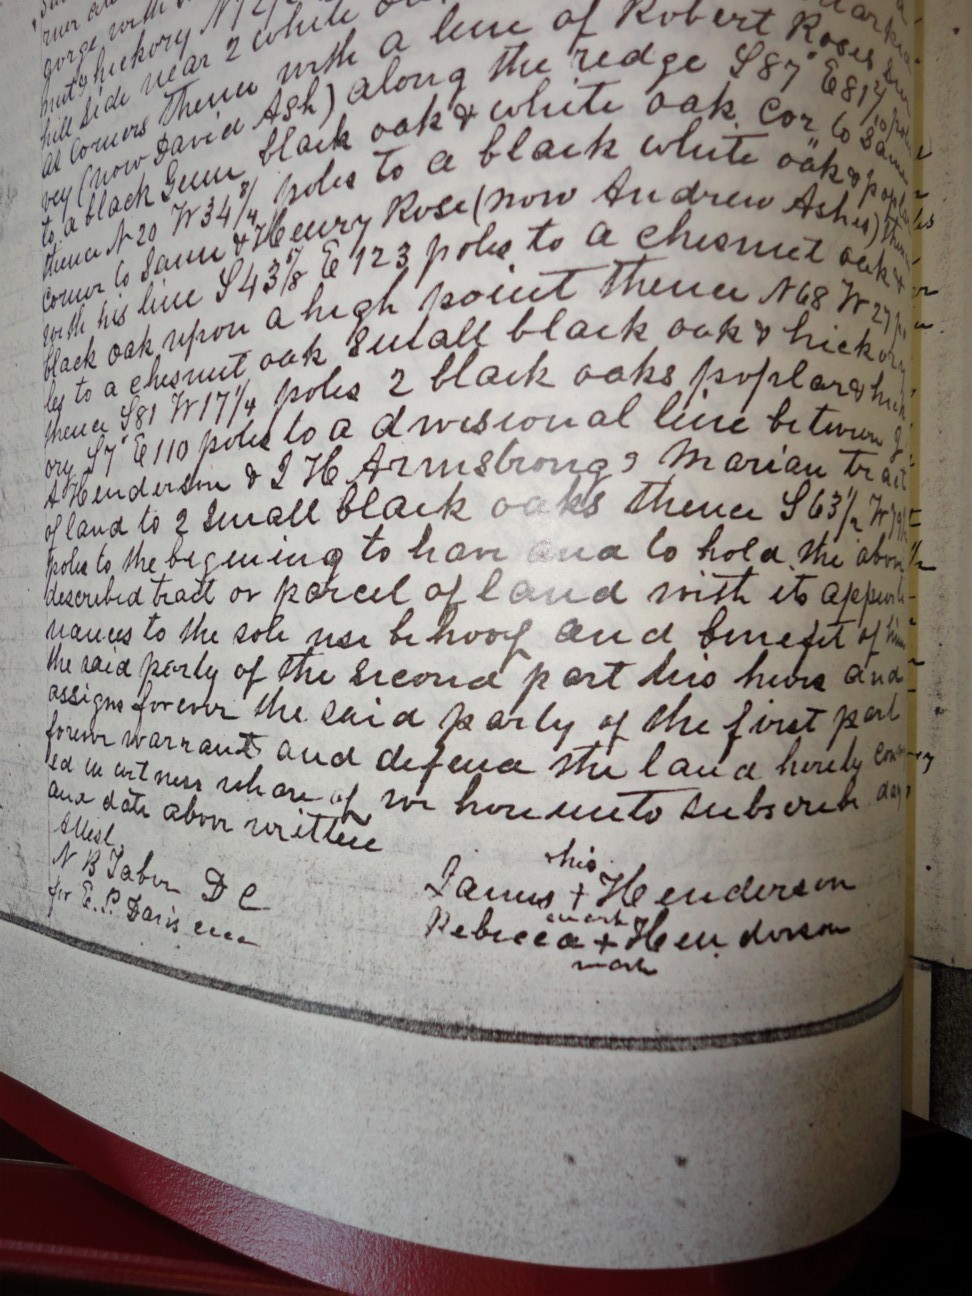 gorge with
nut & hickory N 12
hill side near 2 white
al corners thence with a line of Robert Roses Sur
vey (now David Ash) along the redge S 87° E 81 2/10 po
to a black Gum black oak & white oak Cor to Same
thence N 20 W 34 3/4 poles to a black white oak & poplar
corner to Same & Henry Rose (now Andrew Ashes) then
with his line S 43 5/8 E 123 poles to a chesnut oak &
black oak upon a high point thence N 68 W 27 po
les to a chesnut oak Small black oak & hickory
thence S 81 W 17 1/4 poles 2 black oaks poplar & hick
ory S 7° E 110 poles to a divisional line between J.
A Henderson & J H Armstrong, Marian tract
of land to 2 Small black oaks thence S 63 1/2 W
poles to the begening to have and to hold the above
described tract or parcel of land with its appurte-
nances to the sole use behoof and benefit of him
the said party of the second part his heirs and
assigns forever the said party of the first part
forever warrant and defend the land hereby convey
ed in witness whare of we hereunto subscribe day
and date above written
Attest,
N B Tabor D C
for E. P. Davis
his
James + Henderson
mark
Rebecca + Henderson
mark